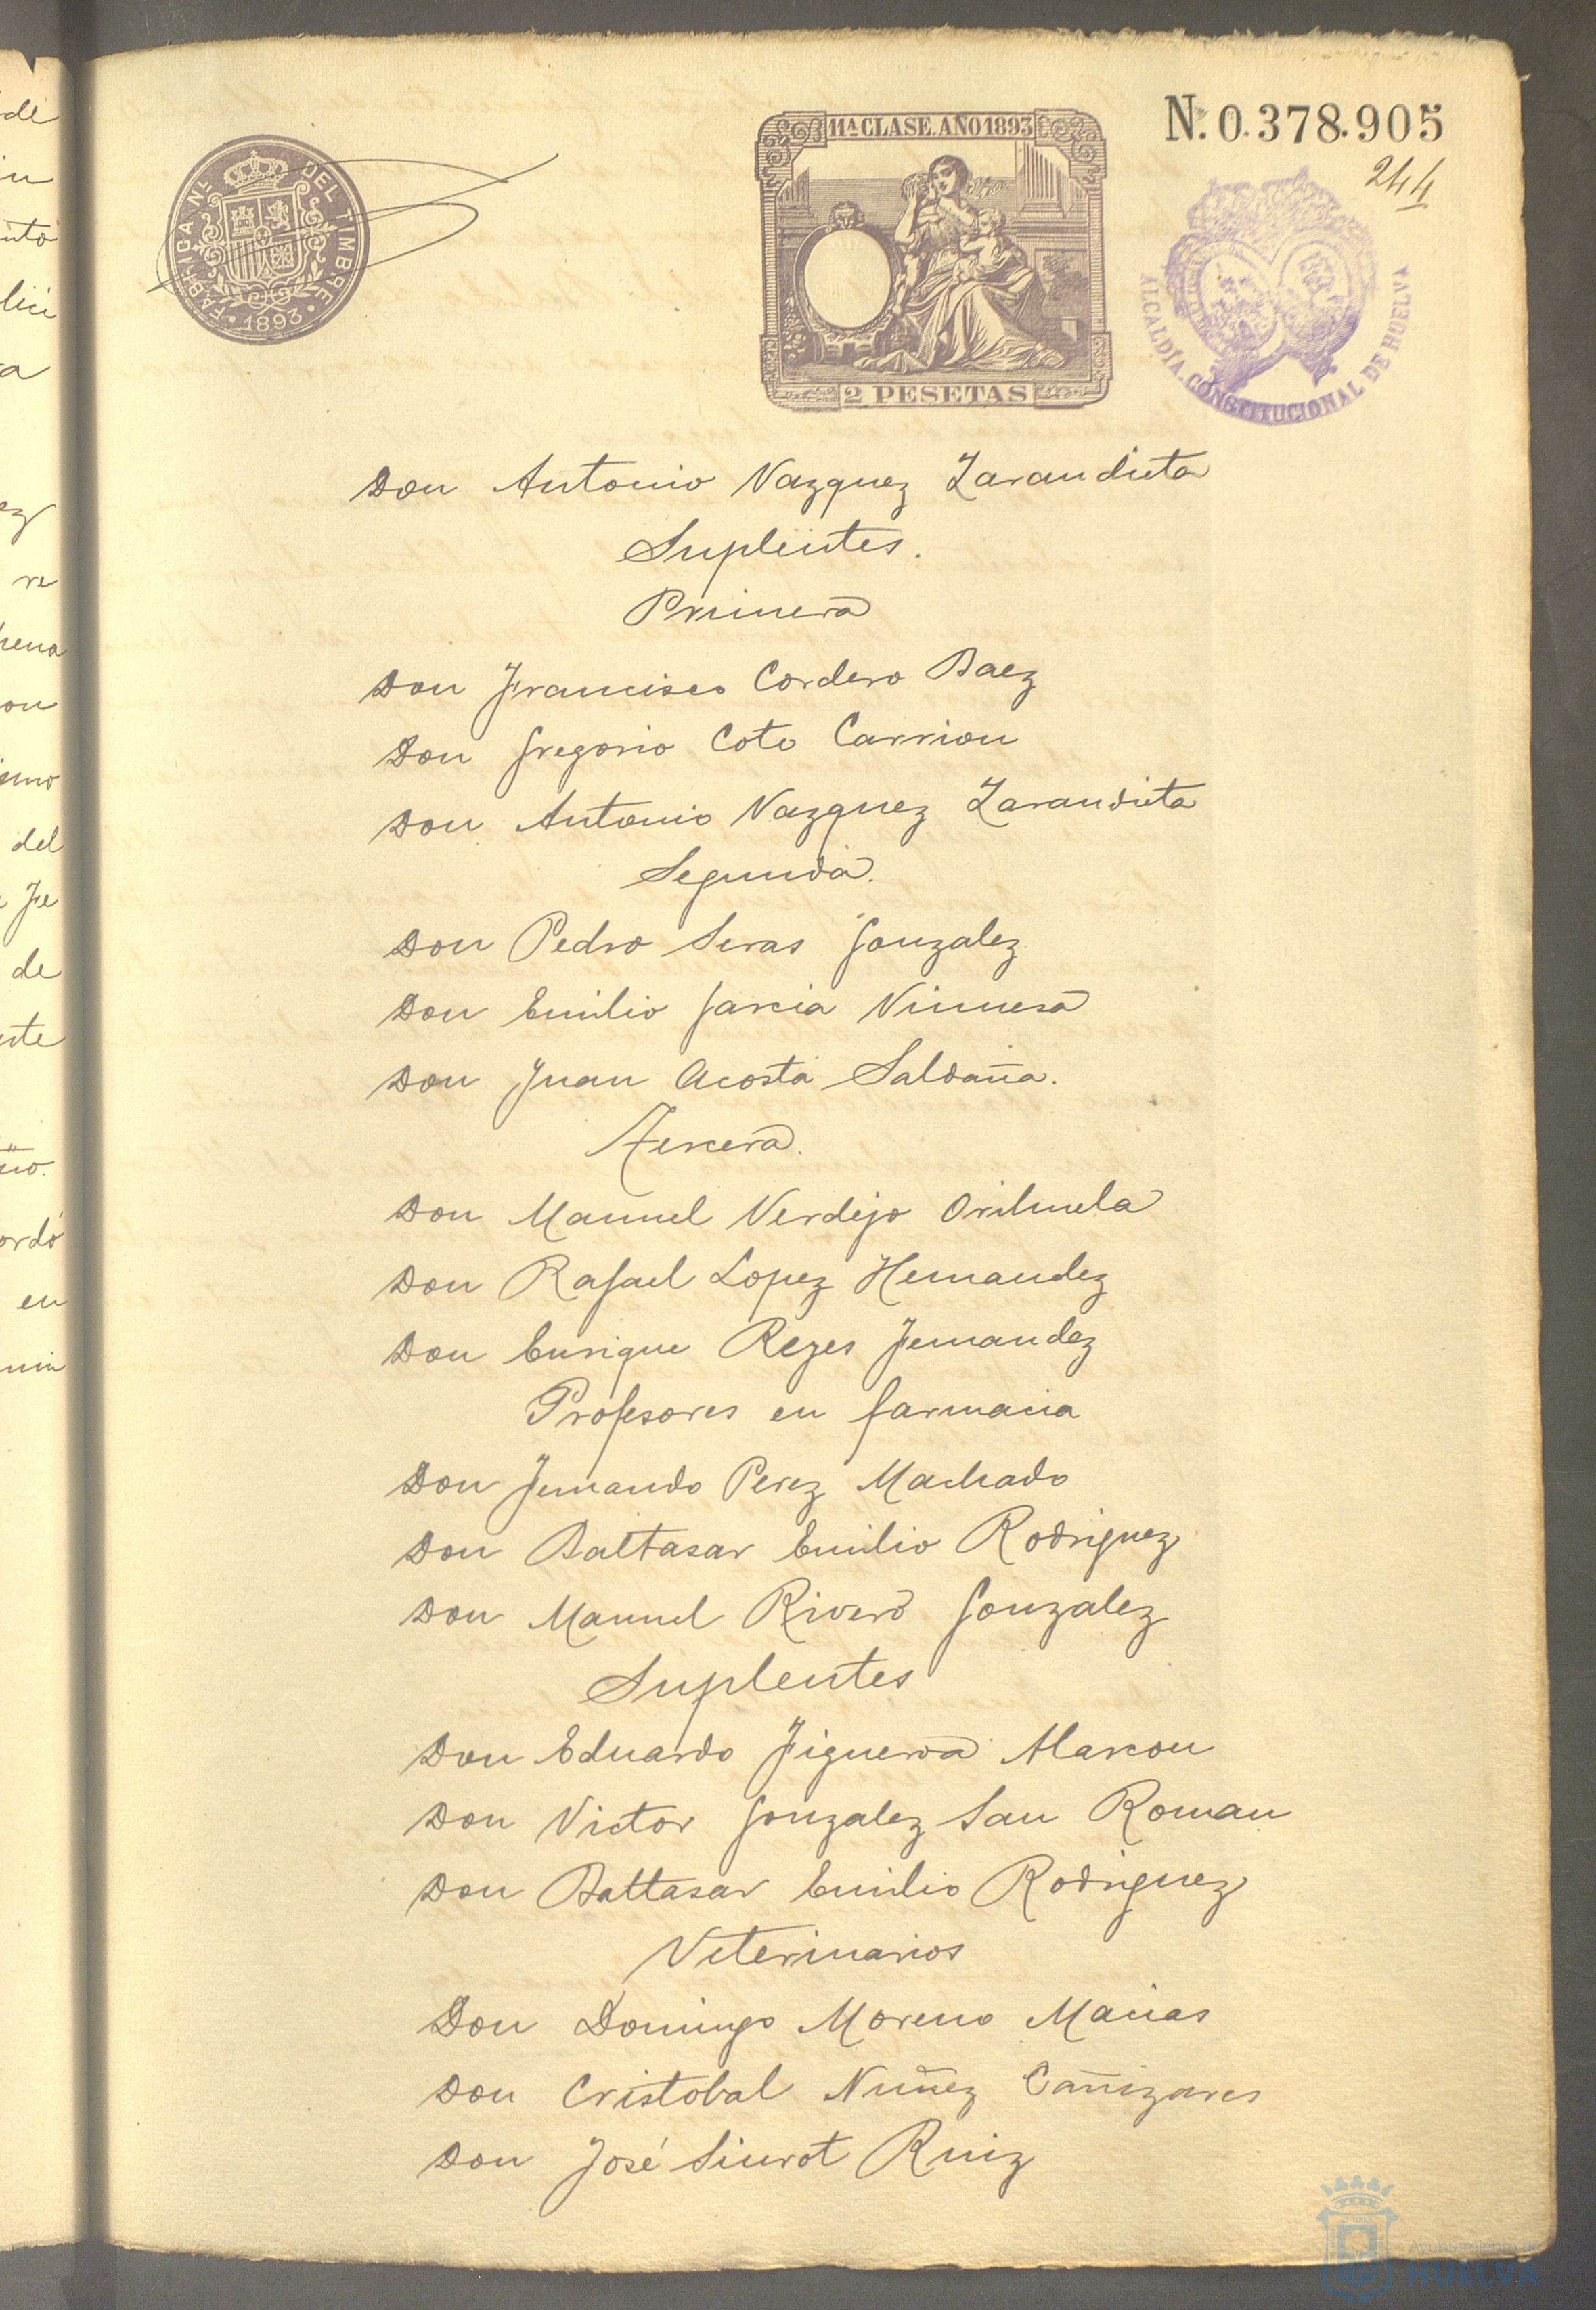 N.º 0.378.905
244
11ª CLASE. AÑO 1893
FABRICA NL. DEL TIMBRE
1893
2 PESETAS
ALCALDÍA CONSTITUCIONAL DE HUELVA
Don Antonio Vazquez Zarandieta
Suplentes.
Primera
Don Francisco Cordero Baez
Don Gregorio Coto Carrion
Don Antonio Vazquez Zarandieta
Segunda.
Don Pedro Seras Gonzalez
Don Emilio Garcia Vinuesa
Don Juan Acosta Saldaña.
Tercera.
Don Manuel Verdejo Orihuela
Don Rafael Lopez Hernandez
Don Enrique Reyes Fernandez
Profesores en farmacia
Don Fernando Perez Machado
Don Baltasar Emilio Rodriguez
Don Manuel Rivero Gonzalez
Suplentes
Don Eduardo Figueroa Alarcon
Don Victor Gonzalez San Roman
Don Baltasar Emilio Rodriguez
Veterinarios
Don Domingo Moreno Macias
Don Cristobal Nuñez Cañizares
Don José Siurot Ruiz
Ayuntamiento de
HUELVA